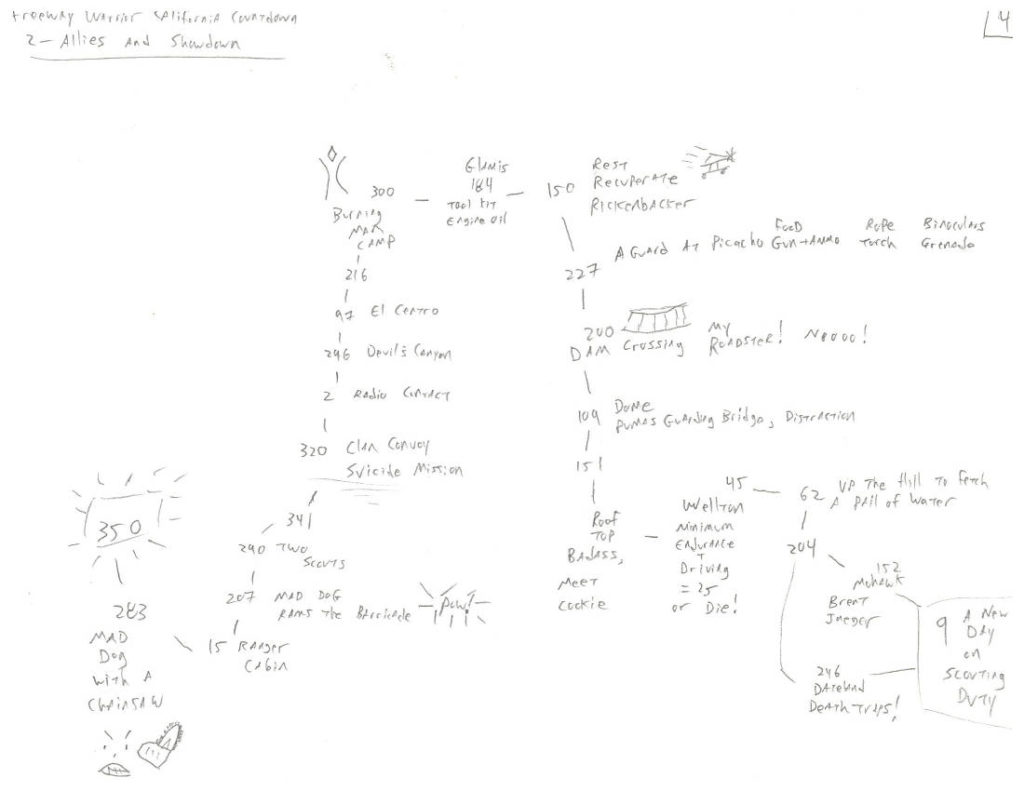 Freeway Warrior California Countdown
2 - Allies And Showdown
4
300
Burning
Man
Camp
Glamis
184
Tool Kit
Engine Oil
150
Rest
Recuperate
Rickenbacker
227
A Guard At Picacho
Food
Gun + Ammo
Rope
Torch
Binoculars
Grenade
216
97 El Centro
296 Devil's Canyon
2 Radio Contact
320 Clan Convoy
Suicide Mission
200
Dam Crossing
My
Roadster! Noooo!
109 Dome
Pumas Guarding Bridge, Distraction
151
Roof
Top
Badass,
Meet
Cookie
45
Wellton
Minimum
Endurance
+
Driving
= 25
or Die!
62 Up The Hill To Fetch
A Pail of Water
204
152
Mohawk
Brent
Jaeger
246
Dateland
Death Traps!
9 A New
Day
on
Scouting
Duty
341
290 Two
Scouts
207 Mad Dog
Rams The Barricade
Pow!
15 Ranger
Cabin
283
Mad
Dog
With A
Chainsaw
350